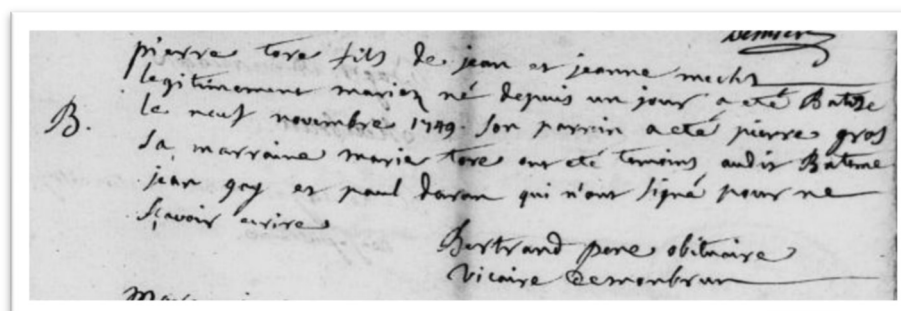 pierre tore fils de jean et jeanne
legitimement mariez né depuis un jour a eté Batise
B. le neuf novembre 1749. son parrin a eté pierre gros
sa marraine marie tore ont eté temoins audit Bateme
jean gay et paul daran qui n'ont signé pour ne
sçavoir ecrire
Bertrand pere obituaire
vicaire Demonbrun